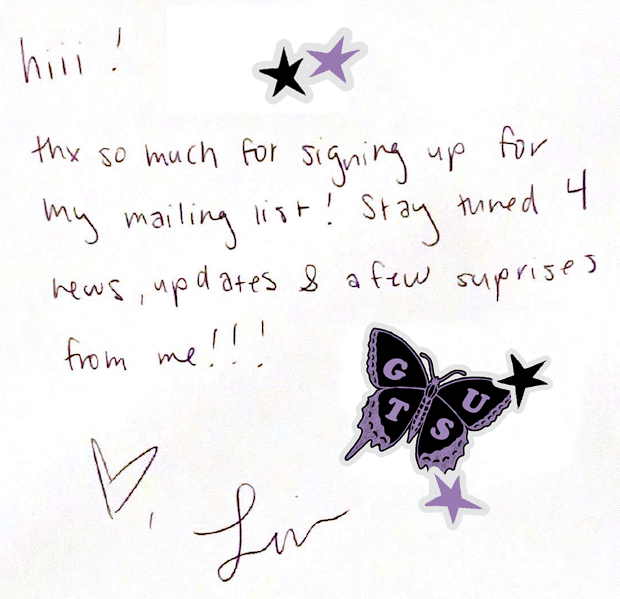 hiii!
thx so much for signing up for
my mailing list! Stay tuned 4
news, updates & a few suprises
from me!!!
G U
T S
Liv